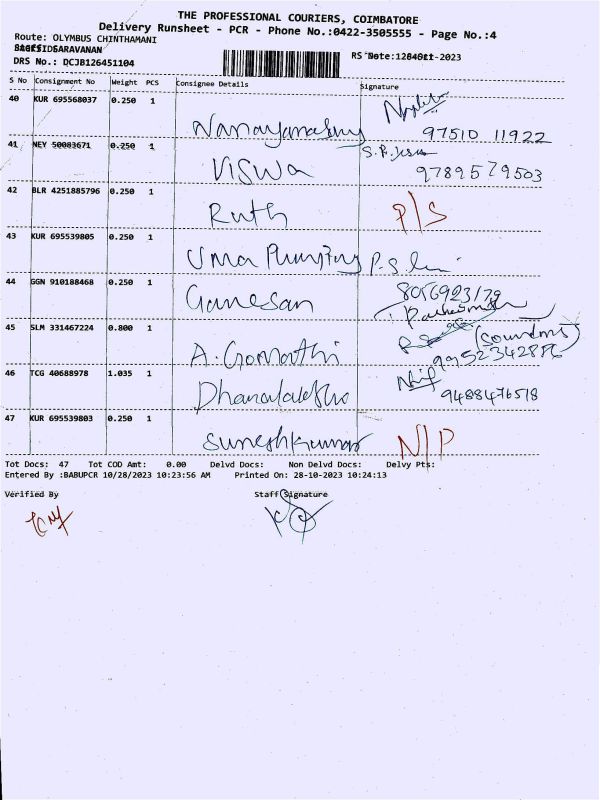 THE PROFESSIONAL COURIERS, COIMBATORE
Delivery Runsheet - PCR - Phone No.:0422-3505555 - Page No.:4
Route: OLYMBUS CHINTHAMANI
SARAVANAN
DRS No.: DCJB126451104
S No Consignment No Weight PCS Consignee Details Signature
40 KUR 695568037 0.250 1
Narayanasamy 97510 11922
41 NEY 50083671 0.250 1
Viswa 9789579503
42 BLR 4251885796 0.250 1
Ruth P/S
43 KUR 695539805 0.250 1
Uma
44 GGN 910188468 0.250 1
Ganesan 8056923179
45 SLM 331467224 0.800 1
A. Gomathi
46 TCG 40688978 1.035 1
9488476518
47 KUR 695539803 0.250 1
Sureshkumar N/P
Tot Docs: 47 Tot COD Amt: 0.00 Delvd Docs: Non Delvd Docs: Delvy Pts:
Entered By :BABUPCR 10/28/2023 10:23:56 AM Printed On: 28-10-2023 10:24:13
Verified By Staff Signature